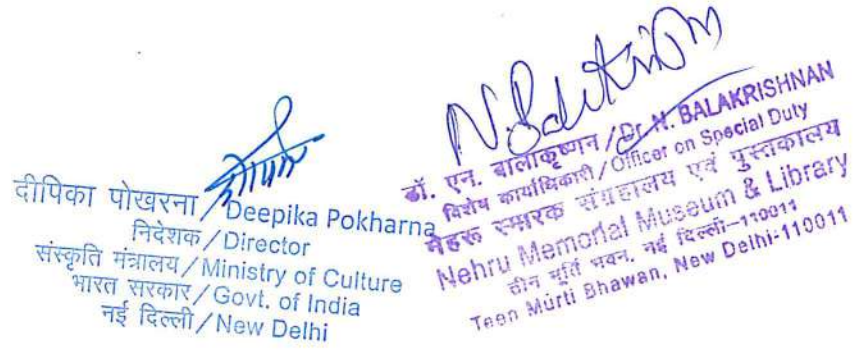 दीपिका पोखरना / Deepika Pokharna
निदेशक / Director
संस्कृति मंत्रालय / Ministry of Culture
भारत सरकार / Govt. of India
नई दिल्ली / New Delhi
डॉ. एन. बालाकृष्णन / Dr. N. BALAKRISHNAN
विशेष कार्याधिकारी / Officer on Special Duty
नेहरू स्मारक संग्रहालय एवं पुस्तकालय
Nehru Memorial Museum & Library
तीन मूर्ति भवन, नई दिल्ली-110011
Teen Murti Bhawan, New Delhi-110011